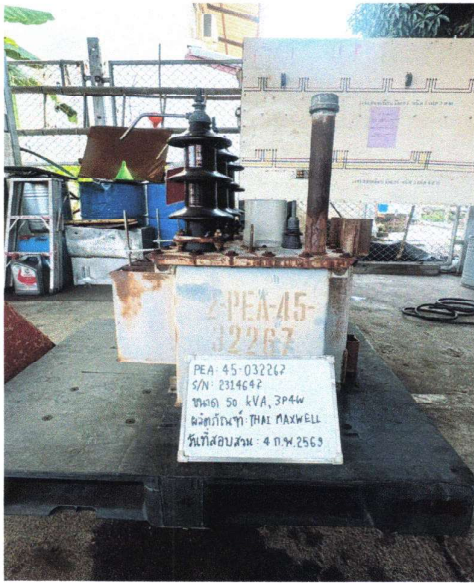 2-PEA-45-
32267
PEA: 45-032267
S/N: 2314642
ขนาด 50 kVA, 3P4W
ผลิตภัณฑ์: THAI MAXWELL
วันที่สอบสวน: 4 ก.พ.2569